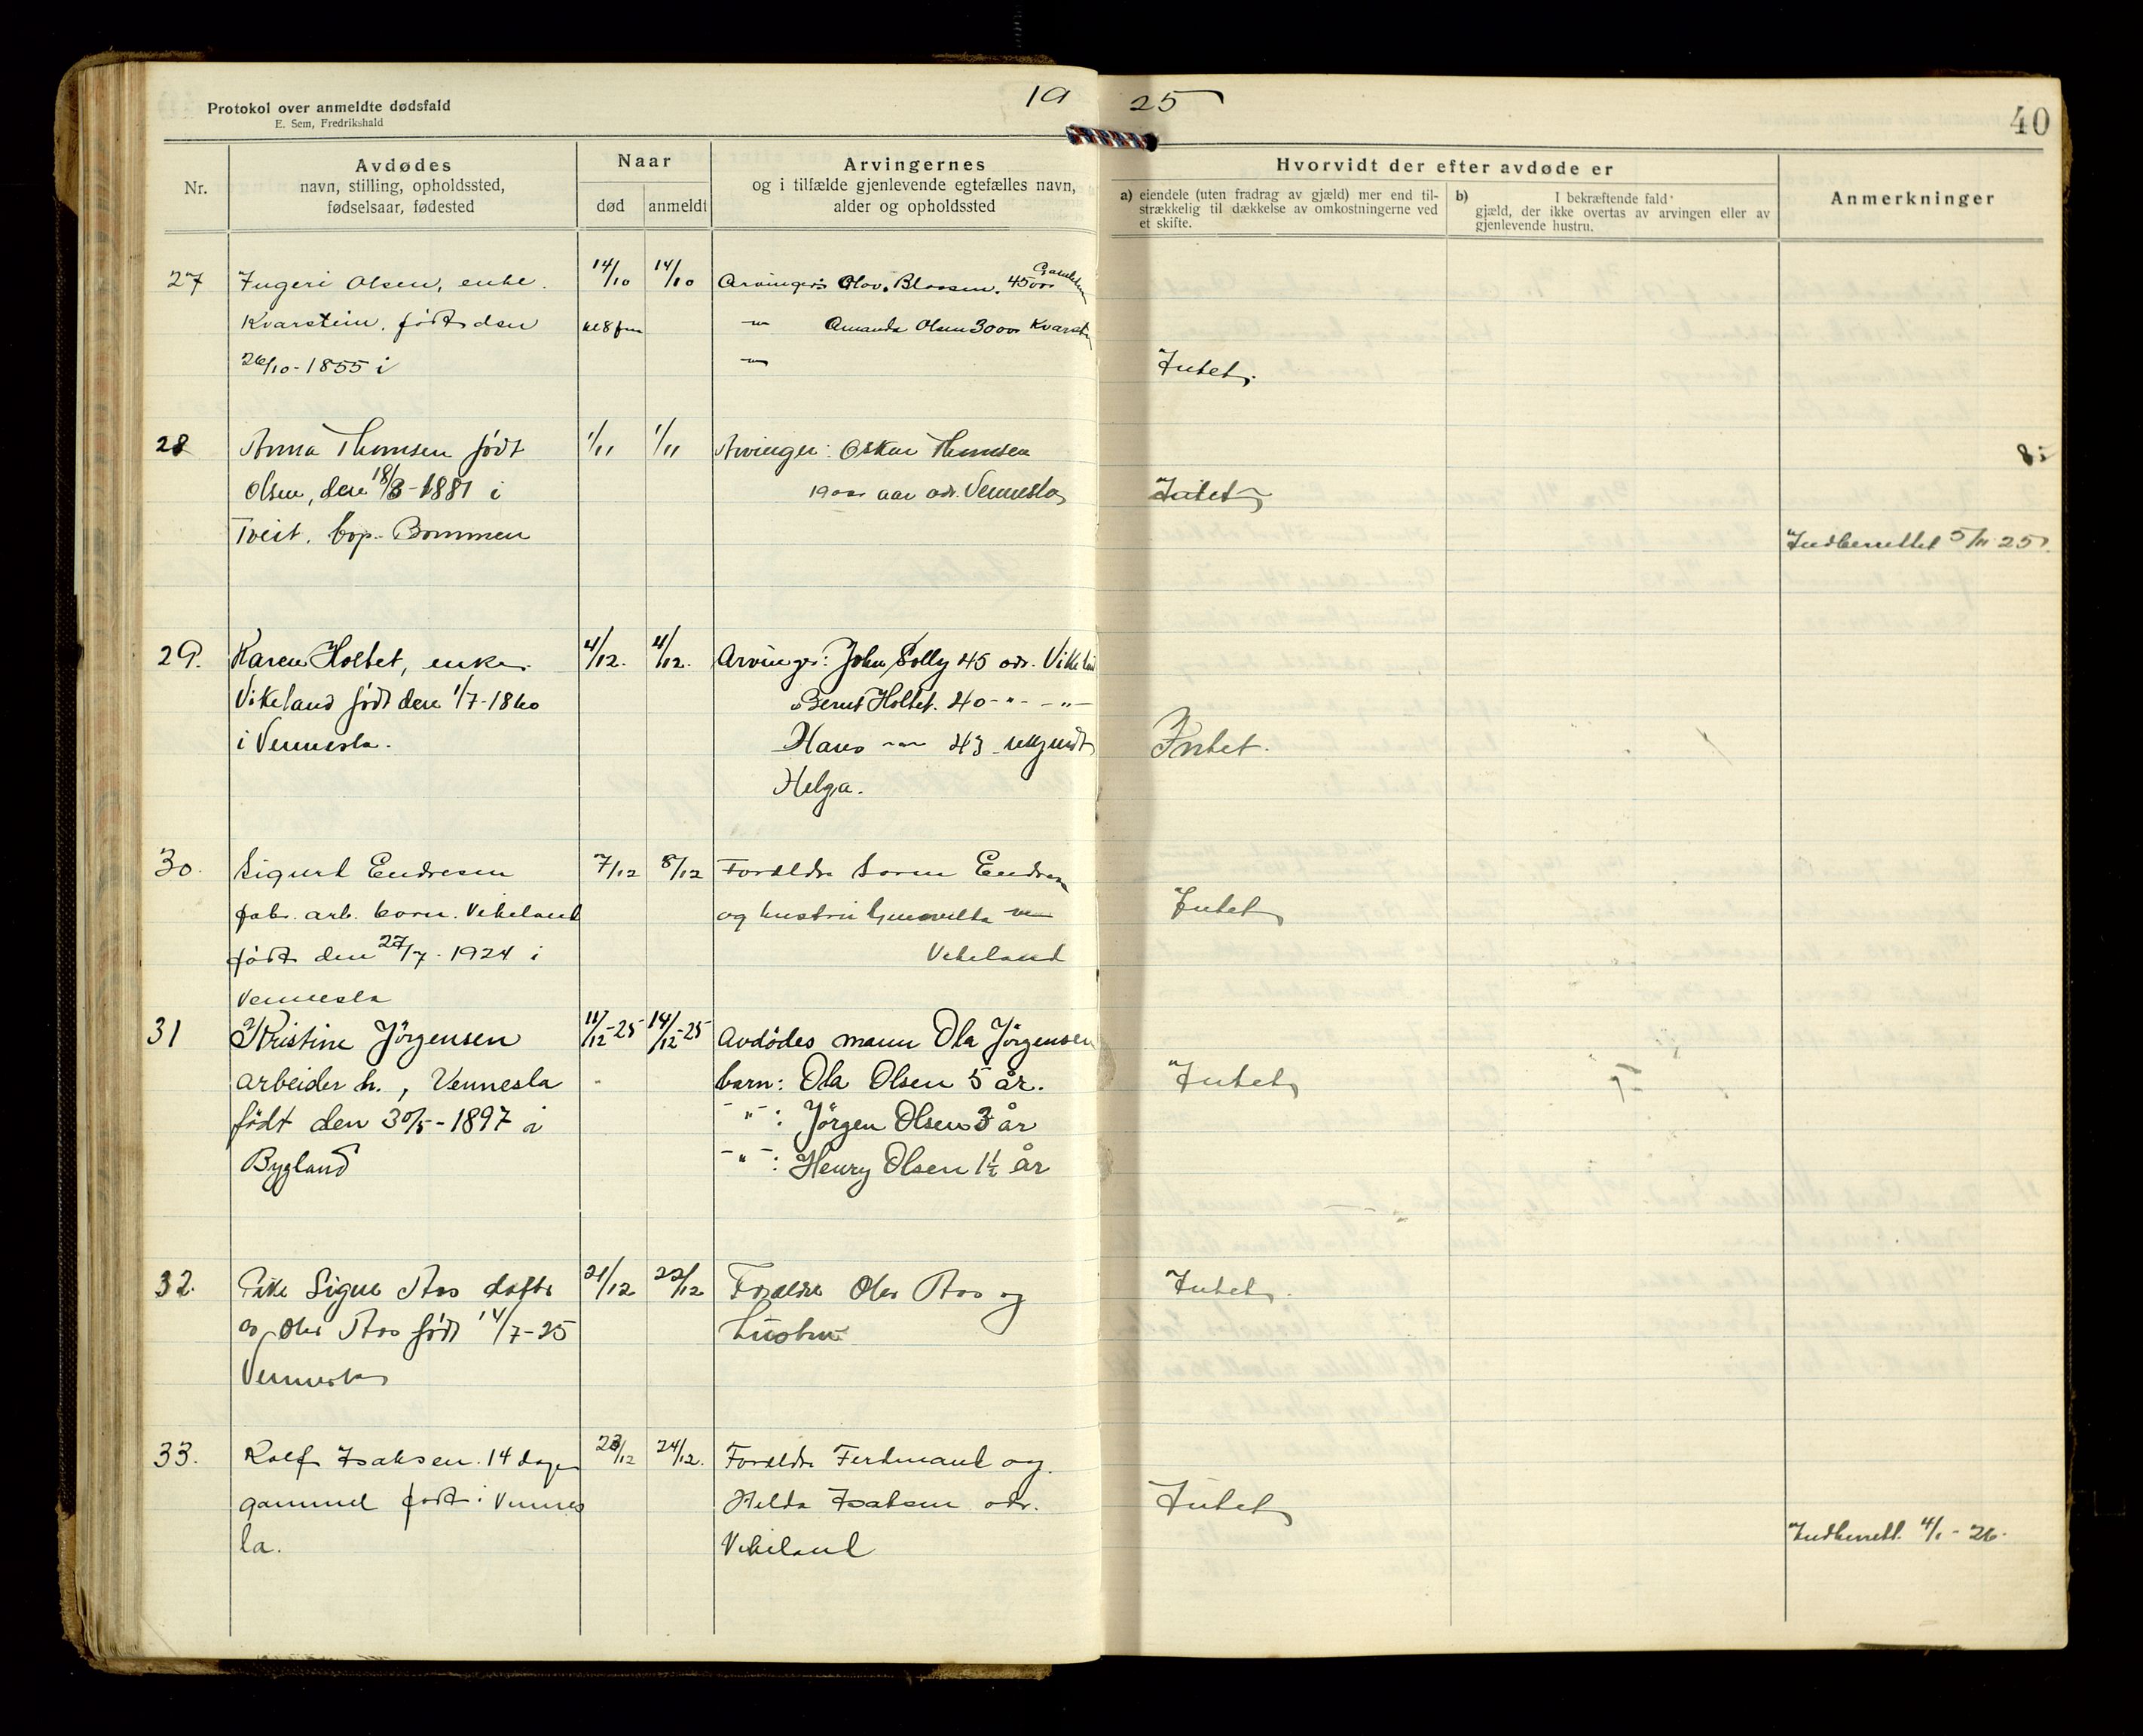 Protokol over anmeldte dødsfald
E. Sem, Fredrikshald
19 25
40
Nr.
Avdødes
navn, stilling, opholdssted,
fødselsaar, fødested
Naar
død
anmeldt
Arvingernes
og i tilfælde gjenlevende egtefælles navn,
alder og opholdssted
Hvorvidt der efter avdøde er
a) eiendele (uten fradrag av gjæld) mer end til-
strækkelig til dækkelse av omkostningerne ved
et skifte.
b) I bekræftende fald
gjæld, der ikke overtas av arvingen eller av
gjenlevende hustru.
Anmerkninger
27
Ingeri Olsen, enke.
Kvarstein. født den
26/10-1855 i
14/10
kl 8 fm
14/10
Arvinger: Olov. 45
Amanda Olsen 30 Kvarstein
Intet.
28
Anna Thomsen født
Olsen, den 18/8-1881 i
Tveit. bop. Bommen
1/11
1/11
Arvinger: Oskar Thomsen
19 aar adr. Vennesla
Intet
Indberettet 5/11 25.
29.
Karen Holtet, enke
Vikeland født den 1/7-1860
i Vennesla.
4/12.
4/12.
Arvinger: John Solly 45 adr. Vikeland
Bernt Holtet. 40 -"- -"-
Hans -"- 43
Helga.
Intet.
30.
Sigurd Endresen
fabr. arb. barn. Vikeland
født den 27/7-1924 i
Vennesla
7/12
8/12
Foreldre Soren Endresen
og hustru
Vikeland
Intet
31
Kristine Jörgensen
arbeider h., Vennesla
födt den 30/5-1897 i
Bygland
11/12-25
14/12-25
Avdödes mann Ola Jörgensen
barn: Ola Olsen 5 år.
-"-: Jörgen Olsen 3 år
-"-: Henry Olsen 1½ år
Intet
32.
Signe Aas
Aas født 14/7-25
Vennesla
21/12
22/12
Foreldre Aas og
hustru
Intet.
33.
Rolf Isaksen. 14 dage
gammel født i Vennes
la.
23/12
24/12.
Foreldre Ferdinand og
Hilda Isaksen adr.
Vikeland
Intet
Indberett. 4/1-26.